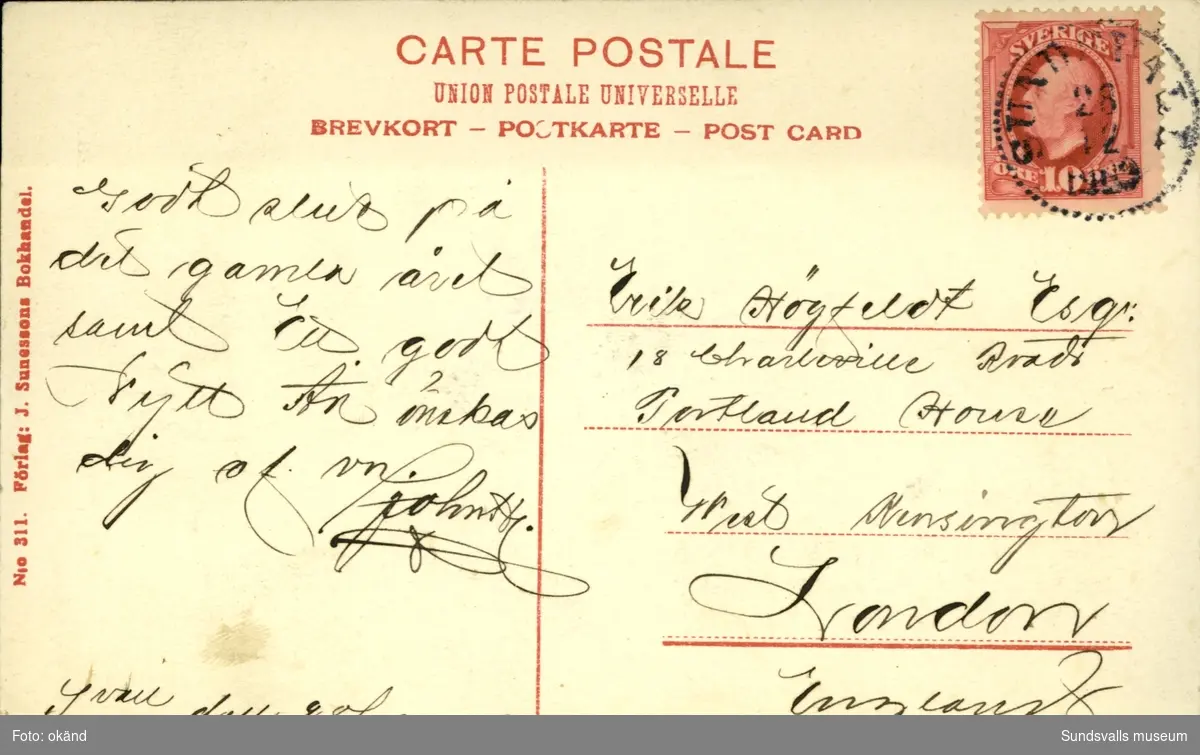 CARTE POSTALE
UNION POSTALE UNIVERSELLE
BREVKORT – POSTKARTE – POST CARD
SVERIGE
ÖRE 10
28
12
N:o 311. Förlag: J. Sunessons Bokhandel.
Godt slut på
det gamla året
samt Ett godt
Nytt År önskas
dig af vn.
John H.
Erik Högfeldt Esqr.
18 Charleville Road
Portland House
West Kensington
London
England
Foto: okänd
Sundsvalls museum